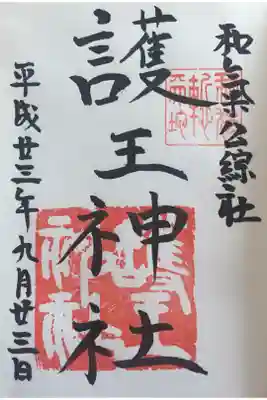 和気公綜社
護王神社
平成廿三年九月廿三日
護王神社